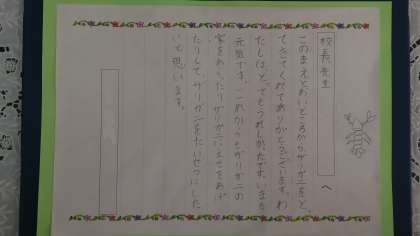 校長先生
へ
このまえとおいところからザリガニをと
てきてくれてありがとうございます。わ
たしは、とてもうれしかたです。いまも
元気です。これからもザリガニの
家をあらったりザリガニにえさをあげ
たりして、ザリガニをたいせつにした
いと思います。